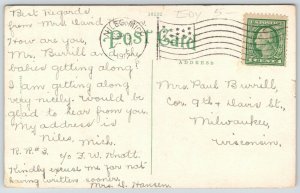 Best Regards
from Mrs. David.
How are you,
Mr. Burrill and the
babies getting along?
I am getting along
very nicely. Would be
glad to hear from you.
My address is
Niles, Mich.
R.R.#3. c/o F.W. Knott.
Kindly excuse me for not
having written sooner.
Mrs. D. Hansen.
Post Card
ADDRESS
Mrs. Paul Burrill,
Cor. 9th &
Milwaukee,
Wisconsin.